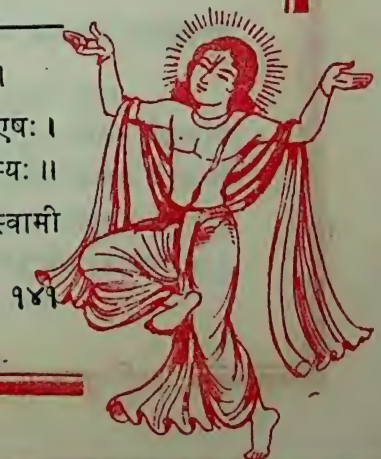 ।
एषः ।
यः ॥
स्वामी
१४१